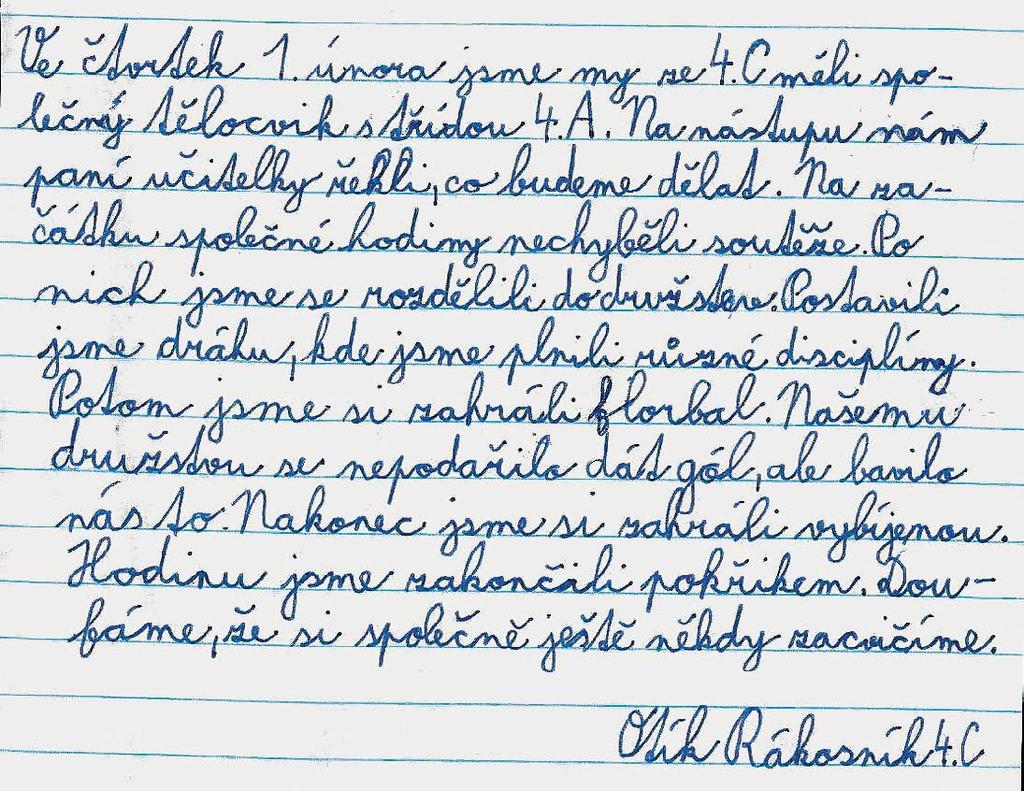 Ve čtvrtek 1. února jsme my ze 4.C měli spo-
lečný tělocvik s třídou 4.A. Na nástupu nám
paní učitelky řekli, co budeme dělat. Na za-
čátku společné hodiny nechyběli soutěže. Po
nich jsme se rozdělili do družstev. Postavili
jsme dráhu, kde jsme plnili různé disciplíny.
Potom jsme si zahráli florbal. Našemu
družstvu se nepodařilo dát gól, ale bavilo
nás to. Nakonec jsme si zahráli vybíjenou.
Hodinu jsme zakončili pokřikem. Dou-
fáme, že si společně ještě někdy zacvičíme.
Otík Rákosník 4.C